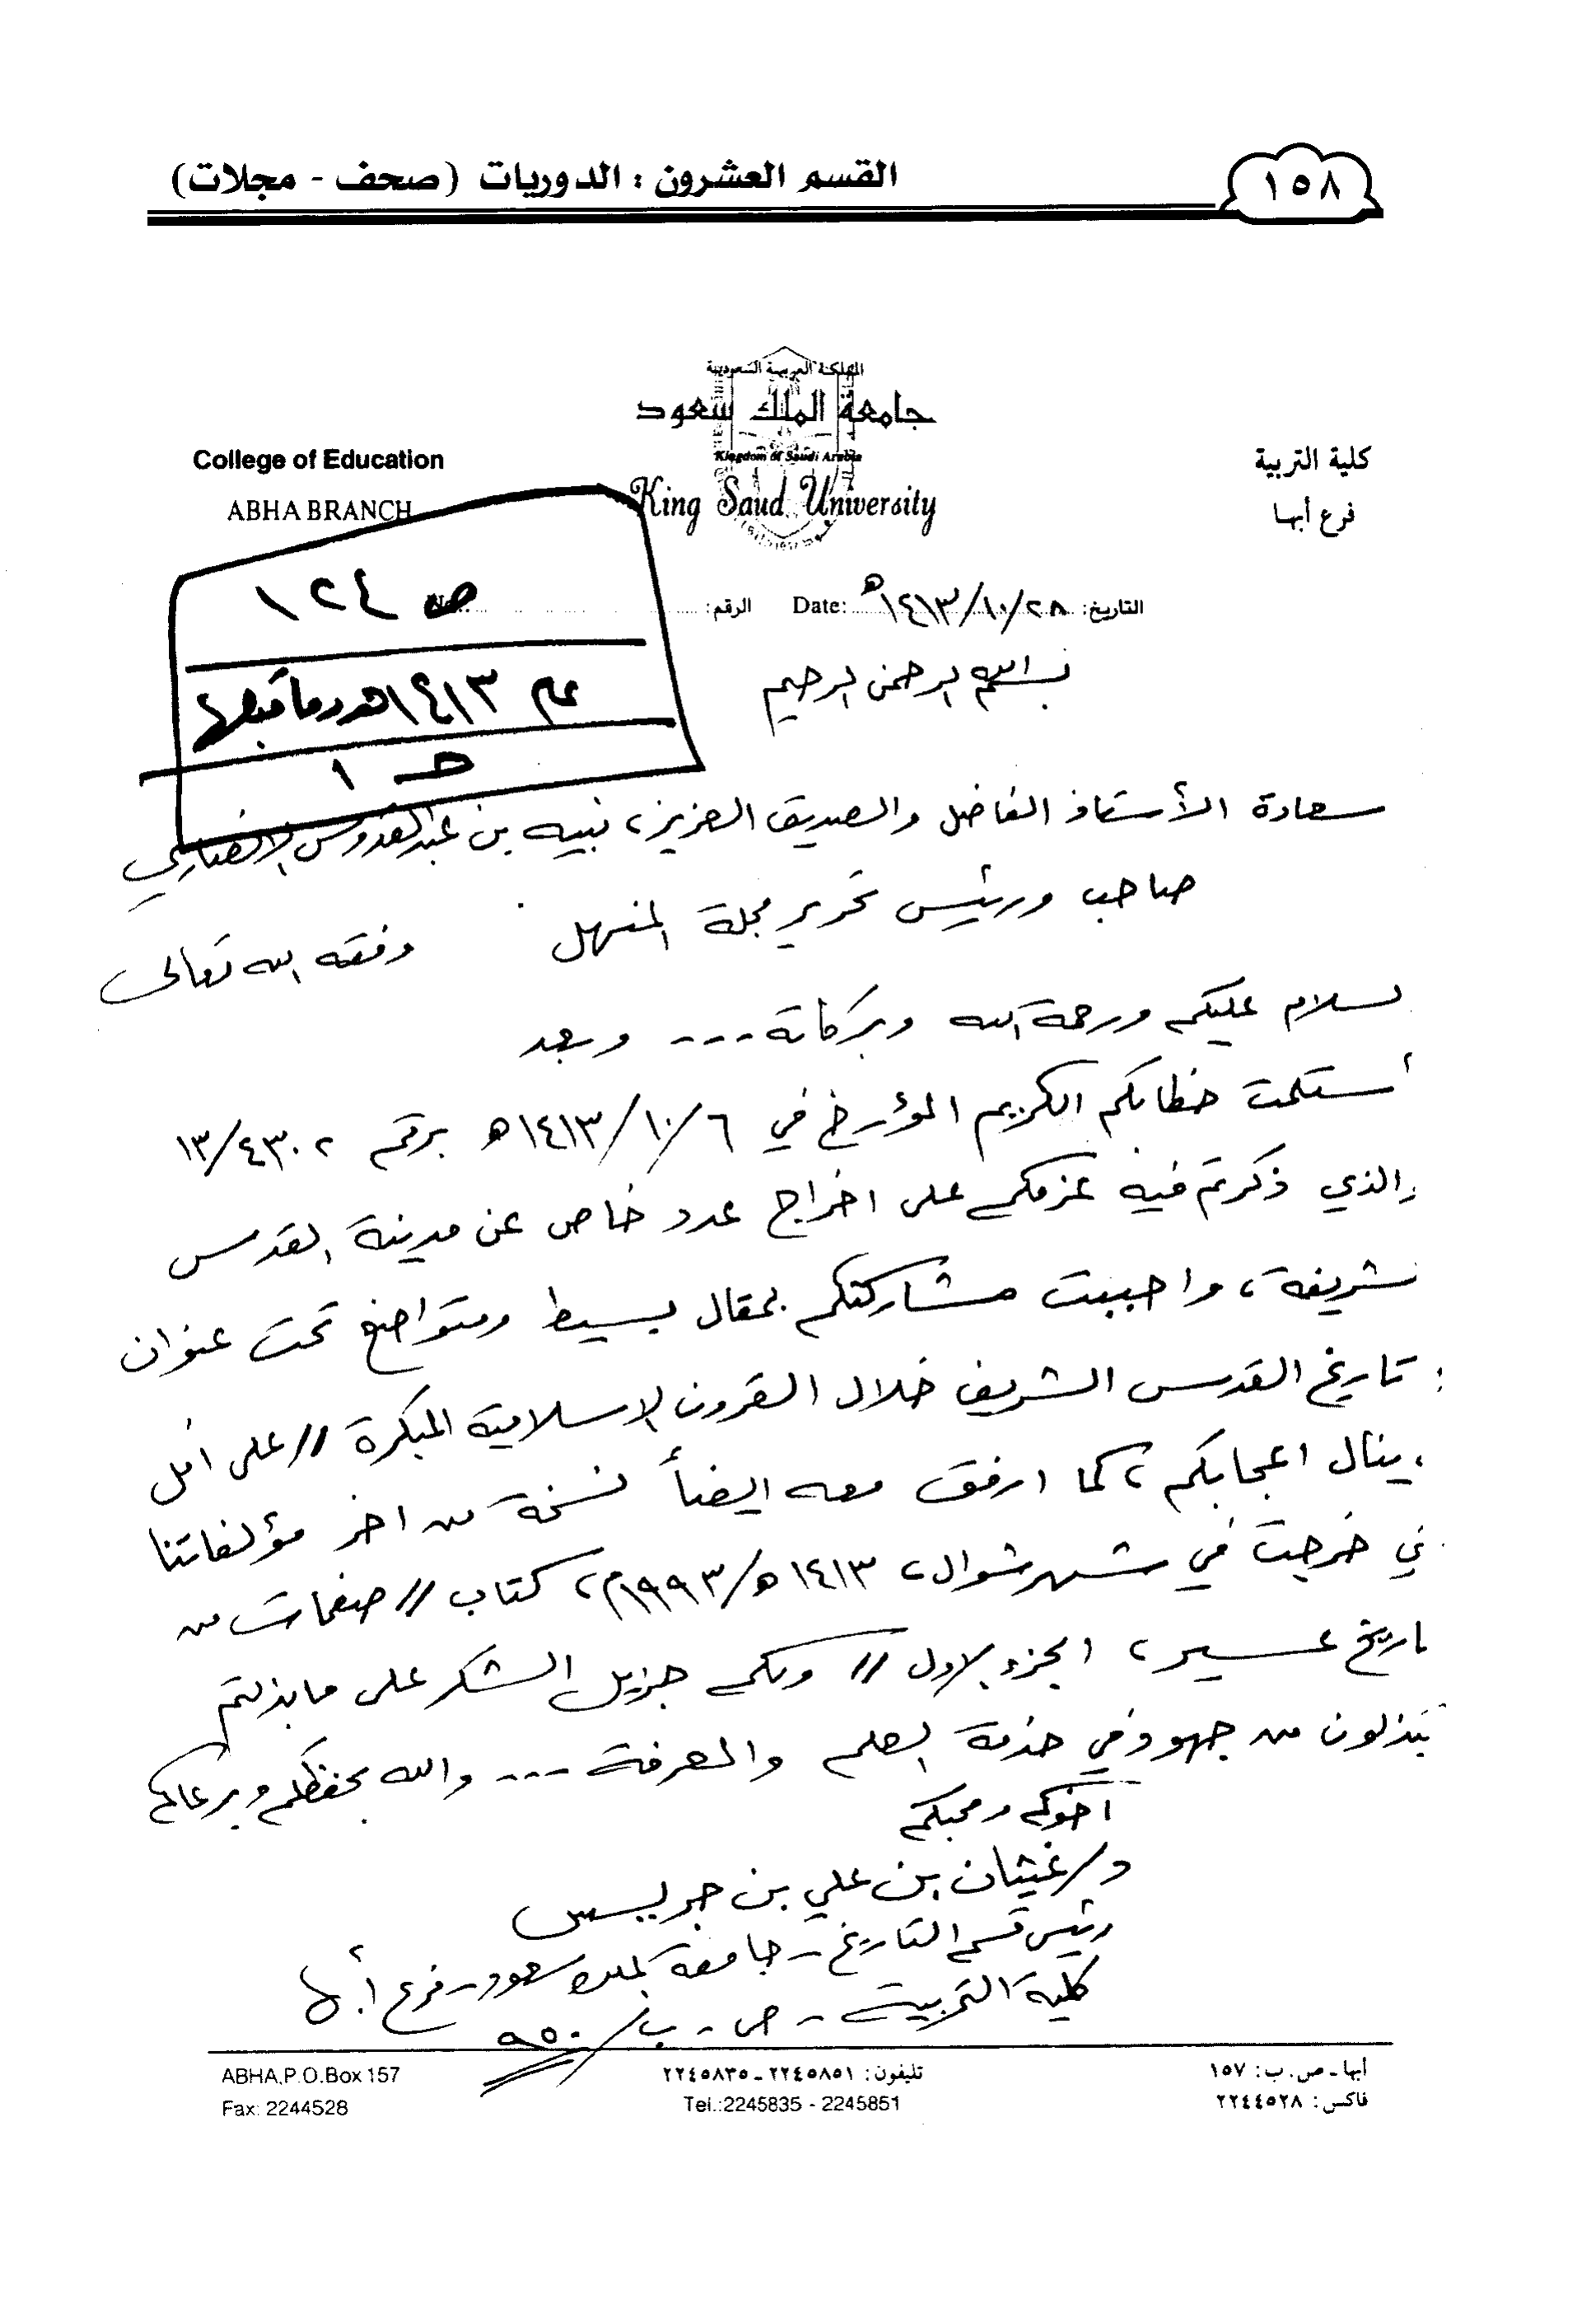 ١٥٨
القسم العشرون : الدوريات (صحف - مجلات)
المملكة العربية السعودية
جامعة الملك سعود
Kingdom of Saudi Arabia
King Saud University
College of Education
ABHA BRANCH
كلية التربية
فرع أبها
التاريخ: ٢٨/١٠/١٤١٣هـ Date:
الرقم:
ص ١٢٤
عام ١٤١٣هـ وما قبلها
حـ ١
بسم الله الرحمن الرحيم
سعادة الأستاذ الفاضل والصديق العزيز، نبيه بن عبدالقدوس الانصاري
صاحب ورئيس تحرير مجلة المنهل وفقه الله تعالى
لسلام عليكم ورحمة الله وبركاته --- وبعد
أستلمت خطابكم الكريم المؤرخ في ٦/١٠/١٤١٣هـ برقم ١٣/٤٣٠٢
والذي ذكرتم فيه عزمكم على اخراج عدد خاص عن مدينة القدس
لشريفة، واحببت مشاركتكم بمقال بسيط ومتواضع تحت عنوان
: تاريخ القدس الشريف خلال القرون الاسلامية المبكرة // على امل
ينال اعجابكم، كما ارفق معه ايضاً نسخة من اخر مؤلفاتنا
تي خرجت في شهر شوال، ١٤١٣هـ/١٩٩٣م، كتاب // صفحات من
تاريخ عسير، الجزء الاول // ولكم جزيل الشكر على ما بذلتم
تبذلون من جهود في خدمة العلم والمعرفة --- والله يحفظكم ويرعاكم
أخوكم ومحبكم
د/ غيثان بن علي بن جريس
رئيس قسم التاريخ - جامعة الملك سعود - فرع أبها
كلية التربية - ص - ب / ٩٥٠
ABHA,P.O.Box 157
Fax: 2244528
تليفون: ٢٢٤٥٨٥١ - ٢٢٤٥٨٣٥
Tel.:2245835 - 2245851
أبها - ص.ب: ١٥٧
فاكس: ٢٢٤٤٥٢٨